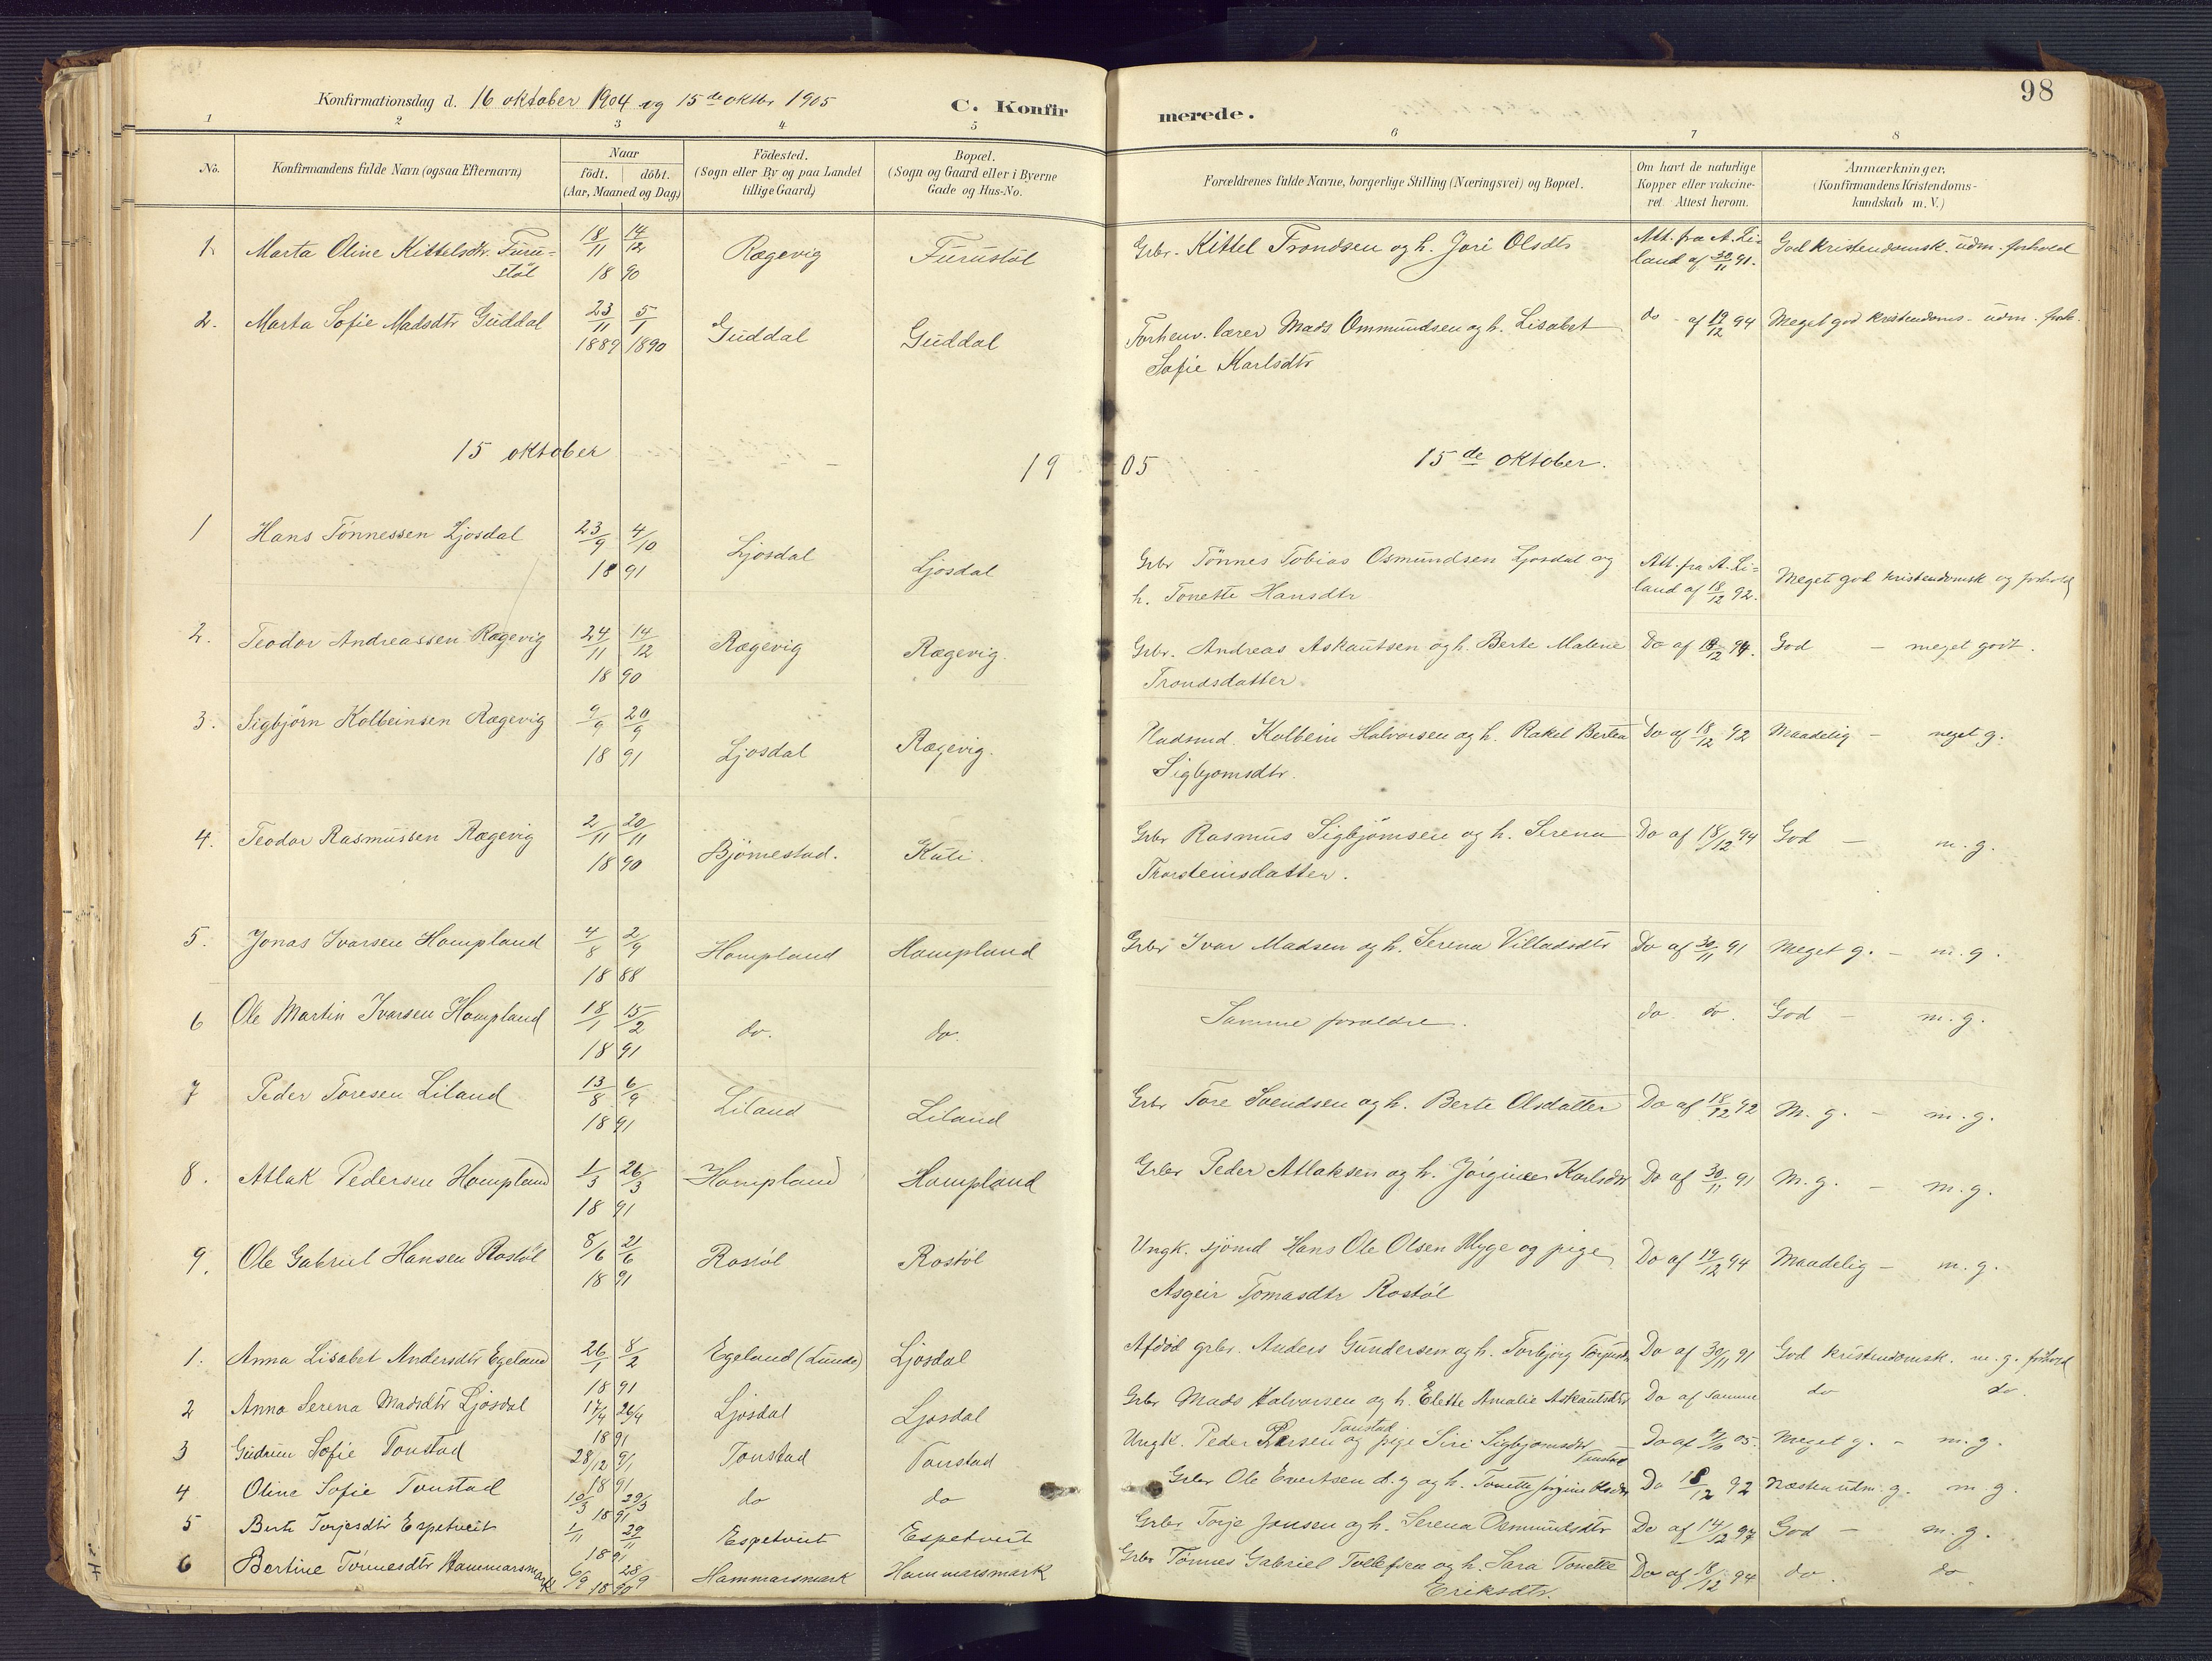 98
Konfirmationsdag d. 16 oktober 1904 og 15de oktbr 1905 C. Konfirmerede.
1 2 3 4 5 6 7 8
No. Konfirmandens fulde Navn (ogsaa Efternavn) Naar födt. döbt. (Aar, Maaned og Dag) Födested. (Sogn eller By og paa Landet tillige Gaard) Bopæl. (Sogn og Gaard eller i Byerne Gade og Hus-No. Forældrenes fulde Navne, borgerlige Stilling (Næringsvei) og Bopæl. Om havt de naturlige Kopper eller vakcineret. Attest herom. Anmærkninger, (Konfirmandens Kristendomskundskab m. V.)
1. Marta Oline Kittelsdtr. Furustøl 18/11 14/12 1890 Rægevig Furustøl Grbr. Kittel Trondsen og h. Jori Olsdtr Att. fra A. Liland af 30/11 91. God kristendomsk. udm. forhold
2. Marta Sofie Madsdtr Guddal 23/11 1889 5/1 1890 Guddal Guddal Forhenv. lærer Mads Ommundsen og h. Lisabet
Sofie Karlsdtr do - af 19/12 94 Meget god kristendoms- udm. forh.
15 oktober 1905 15de oktober.
1 Hans Tönnessen Ljosdal 23/9 4/10 1891 Ljosdal Ljosdal Grbr Tönnes Tobias Osmundsen Ljosdal og
h. Tonette Hansdtr Att. fra A. Liland af 18/12 92. Meget god kristendomsk og forhold
2. Teodor Andreassen Rægevig 24/11 14/12 1890 Rægevig Rægevig. Grbr. Andreas Askautsen og h. Berte Malene
Trondsdatter Do af 18/12 94. God - meget godt.
3. Sigbjörn Kolbeinsen Rægevig 9/9 20/9 1891 Ljosdal Rægevig. Kolbein Halvorsen og h. Rakel Bertea
Sigbjornsdtr. Do af 18/12 92 Maadelig - meget g.
4. Teodor Rasmussen Rægevig 2/11 20/11 1890 Björnestad. Kuli. Grbr Rasmus Sigbjörnsen og h. Serena
Thorsteinsdatter. Do af 18/12 94 God - m. g.
5. Jonas Ivarsen Hompland 4/8 2/9 1888 Hompland Hompland Grbr Ivar Madsen og h. Serena Villadsdtr Do af 30/11 91 Meget g. - m. g.
6 Ole Martin Ivarsen Hompland 18/1 15/2 1891 do. do. Samme foreldre. do. do. God - m. g.
7 Peder Toresen Liland 13/8 6/9 1891 Liland Liland Grbr Tore Svendsen og h. Berte Olsdatter Do af 18/12 92 M. g. - m. g.
8. Atlak Pedersen Hompland 1/3 26/3 1891 Hompland Hompland Grbr Peder Atlaksen og h. Jørgine Karlsdtr Do af 30/11 91 M. g. - m. g.
9. Ole Gabriel Hansen Rostøl 8/6 21/6 1891 Rostøl Rostøl Ungk. sjömd Hans Ole Olsen Myge og pige
Asgeir Tomasdtr Rostøl Do af 19/12 94 Maadelig - m. g.
1. Anna Lisabet Andersdtr Egeland 26/1 8/2 1891 Egeland (Lunde) Ljosdal Afdöd grbr. Anders Gundersen og h. Torbjörg Do af 30/11 91 God kristendomsk. m. g. forhold
2 Anna Serena Madsdtr Ljosdal 17/4 26/4 1891 Ljosdal Ljosdal Grbr Mads Halvorsen og h. Elette Amalie Askautsdtr Do af samme do do.
3 Gudrun Sofie Tonstad 28/12 1891 Tonstad Tonstad Ungk. Peder Tonstad og pige Siri Sigbjornsdtr Tonstad Do af 05. Meget g. - m. g.
4 Oline Sofie Tonstad 10/3 29/3 1891 do do Grbr Ole Evertsen d. y og h. Tonette Jörgine Olsdtr Do 18/12 92 Næsten udm. g. m. g.
5 Berte Torjesdtr Espetveit 1/11 29/11 1891 Espetveit Espetveit Grbr Torje Jonsen og h. Serena Osmundsdtr Do af 14/12 97 God - m. g.
6 Bertine Tönnesdtr Hammarsmark 6/9 28/9 1890 Hammarsmark Hammarsmark Grbr Tönnes Gabriel Tollefsen og h. Sara Tonette
Eriksdtr. Do af 18/12 94 do. do